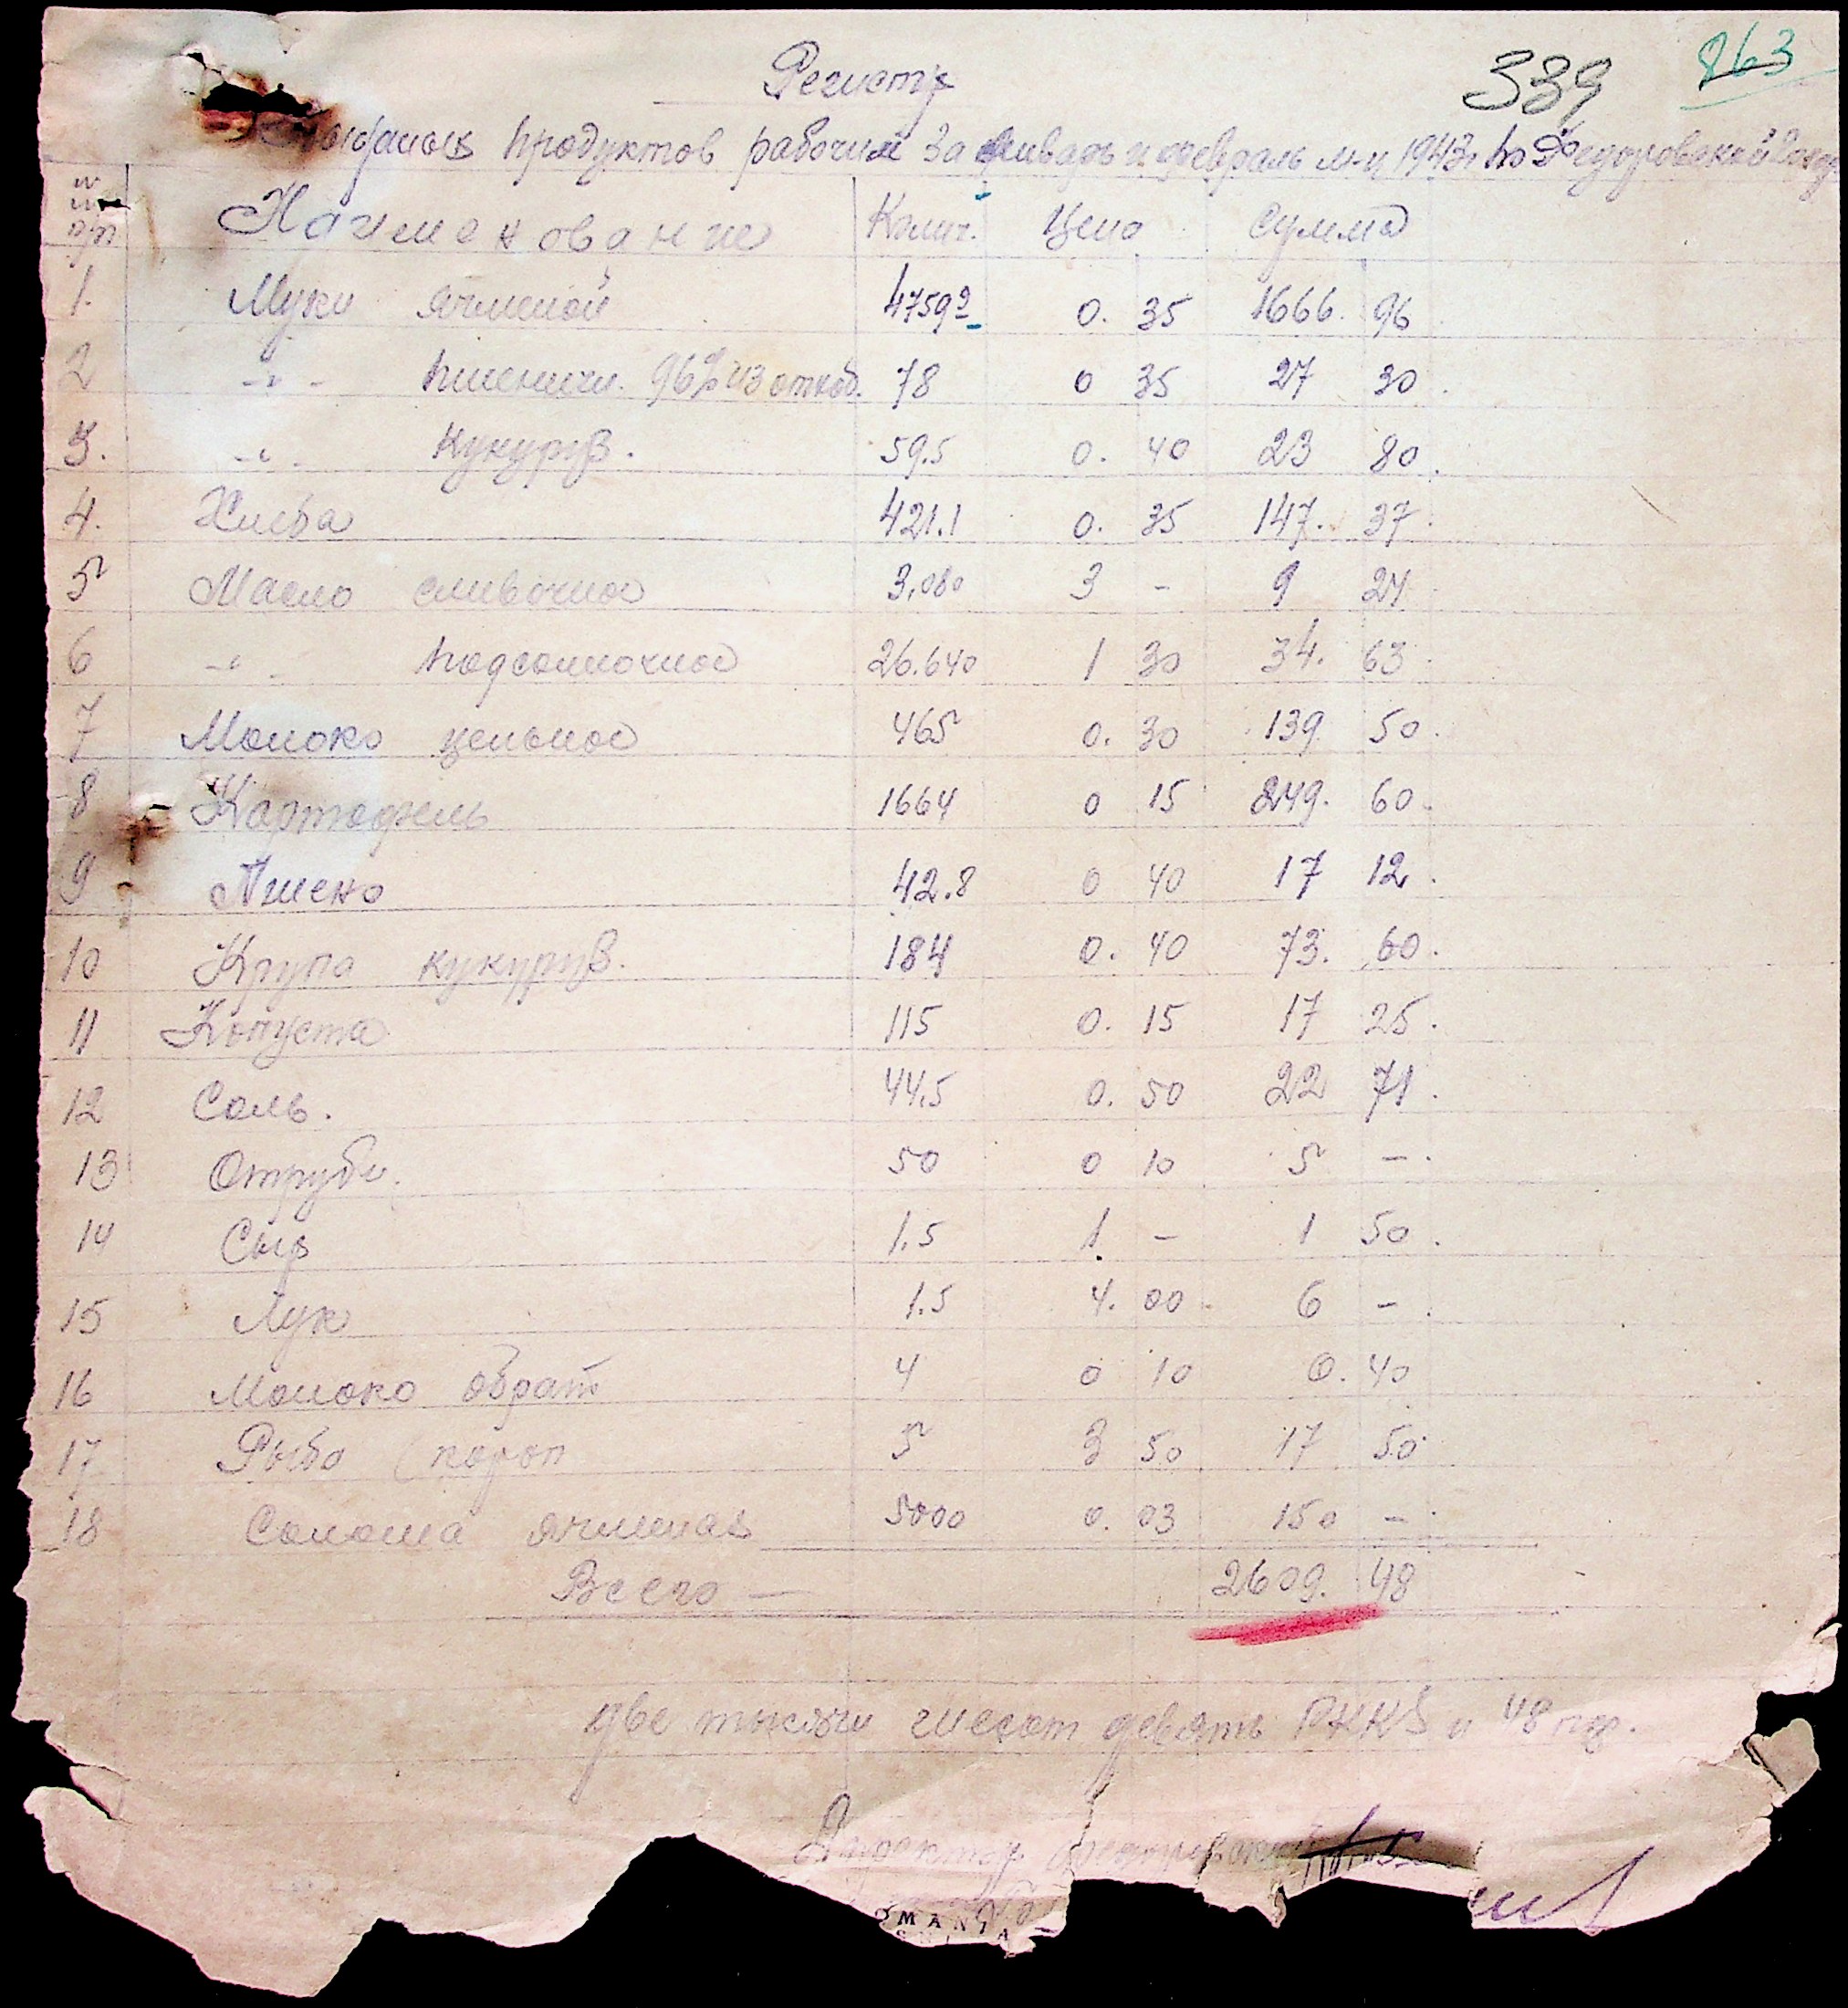 339 863
Регистр
продуктов рабочим за январь и февраль м-ц 1943г по Федоровской
п/п Наименование Колич. Цена Сумма
1. Муки ячменой 4759 0. 35 1666. 96
2 -"- пшеничн. 96% из отхоб. 78 0 35 27 30
3. -"- кукуруз. 59.5 0. 40 23 80
4. Хлеба 421.1 0. 35 147. 37
5 Масло сливочное 3,080 3 - 9 24
6 -"- подсолночное 26.640 1 30 34. 63
7 Молоко цельное 465 0. 30 139 50
8 Картофель 1664 0 15 249. 60
9 Пшено 42.8 0 40 17 12
10 Крупа кукуруз. 184 0. 40 73. 60
11 Копуста 115 0. 15 17 25
12 Соль. 44.5 0. 50 22 71
13 Отруби. 50 0 10 5 -
14 Сыр 1.5 1. - 1 50
15 Лук 1.5 4. 00 6 -
16 Молоко обрат 4 0 10 0. 40
17 Рыба (короп 5 3 50 17 50
18 Солома ячменая 5000 0. 03 150 -
Всего — 2609. 48
две тысячи шесот девять РККS и 48 пф.
Директор
OMANIA